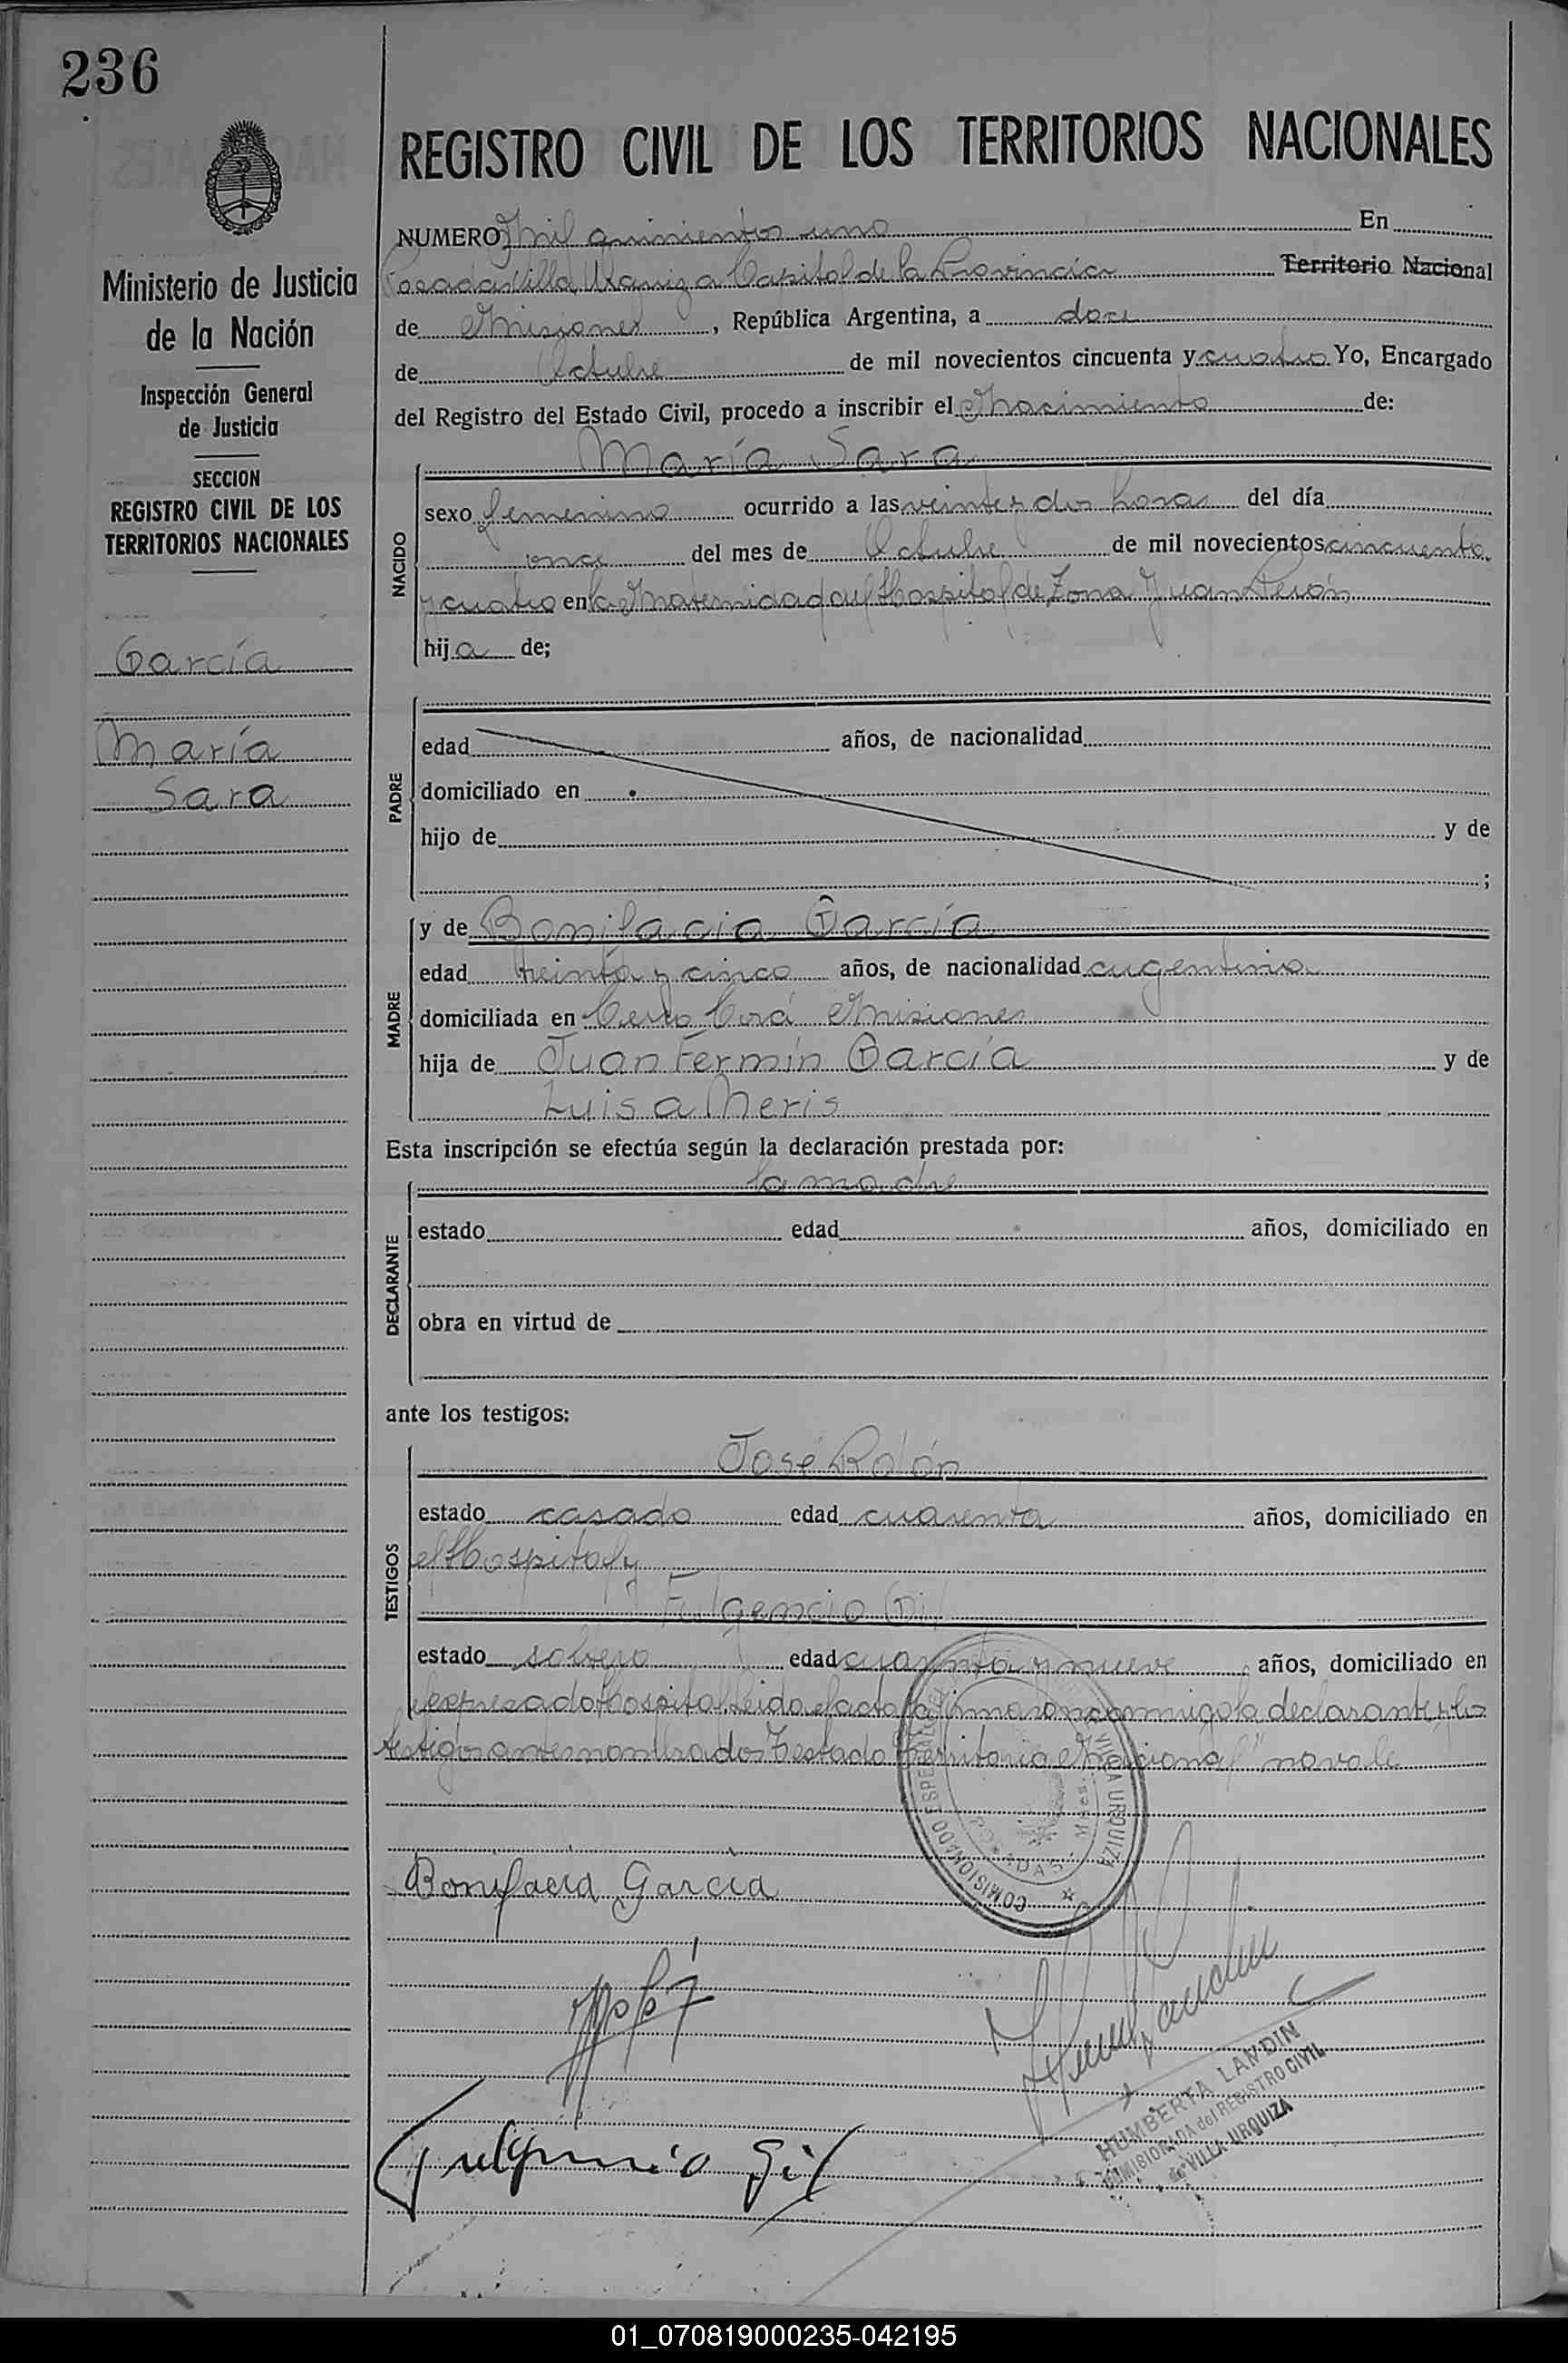 236
REGISTRO CIVIL DE LOS TERRITORIOS NACIONALES
Ministerio de Justicia
de la Nación
Inspección General
de Justicia
SECCION
REGISTRO CIVIL DE LOS
TERRITORIOS NACIONALES
García
María
Sara
NUMERO Mil quinientos uno En
Posadas Villa Urquiza Capital de la Provincia Territorio Nacional
de Misiones, República Argentina, a doce
de Octubre de mil novecientos cincuenta y cuatro Yo, Encargado
del Registro del Estado Civil, procedo a inscribir el Nacimiento de:
NACIDO
María Sara
sexo femenino ocurrido a las veintey dos horas del día
once del mes de Octubre de mil novecientos cincuenta
y cuatro en la Maternidad del Hospital de Zona Juan Perón
hija de;
PADRE
edad años, de nacionalidad
domiciliado en
hijo de y de
;
MADRE
y de Bonifacia García
edad treinta y cinco años, de nacionalidad argentina
domiciliada en Cerro Corá Misiones
hija de Juan Fermín García y de
Luisa Neris
Esta inscripción se efectúa según la declaración prestada por:
DECLARANTE
la madre
estado edad años, domiciliado en
obra en virtud de
ante los testigos:
TESTIGOS
José Rolón
estado casado edad cuarenta años, domiciliado en
el Hospital y
Fulgencio Gil
estado soltero edad cuarenta y nueve años, domiciliado en
el expresado Hospital. Leida el acta la firmaron conmigo la declarante y los
testigos antes nombrados Testado "Territorio Nacional" no vale
COMISIONADO ESPECIAL VILLA URQUIZA
POSADAS - Mnes.
Bonifacia García
Fulgencio Gil
HUMBERTA LANDIN
COMISIONADA del REGISTRO CIVIL
de VILLA URQUIZA
01_070819000235-042195